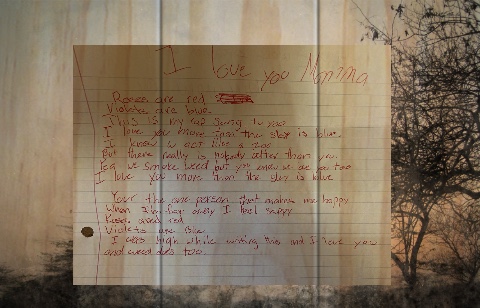 I love you Momma
Roses are red
Violets are blue
This is my
I love you more than the sky is blue
I know I act like a
But there really is nobody better than you
we smoke weed but you know we do you too
I love you more than the sky is blue
Your the one person that makes me happy
When I'm far away I feel
Roses are red
Violets are Blue
I was high while writing this and I love you
and weed does too